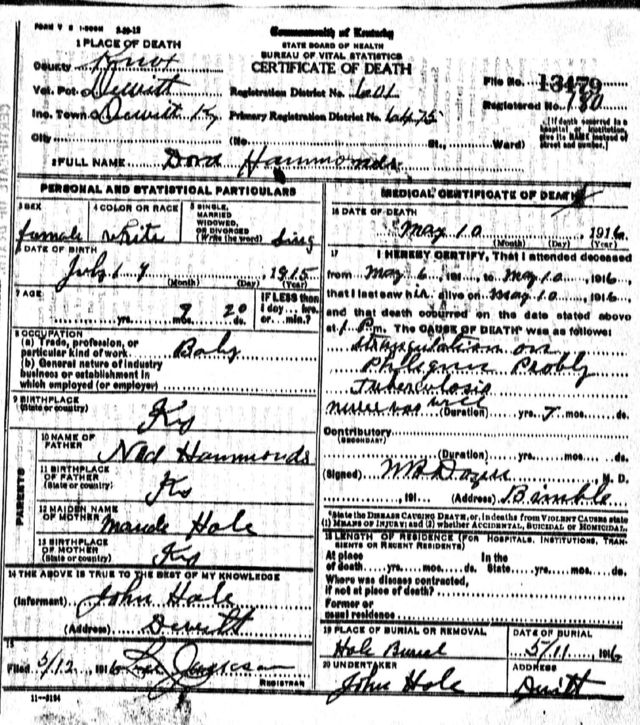 FORM V S 1-500M 2-20-12
Commonwealth of Kentucky
STATE BOARD OF HEALTH
BUREAU OF VITAL STATISTICS
CERTIFICATE OF DEATH
1 PLACE OF DEATH
County Knox
Vot. Pct. Dewitt
Inc. Town Dewitt Ky
City
Registration District No. 601
Primary Registration District No. 6475
(No. St., Ward)
File No. 13479
Registered No. 180
(If death occurred in a hospital or institution, give its NAME instead of street and number.)
2 FULL NAME Dora Hammonds
PERSONAL AND STATISTICAL PARTICULARS
3 SEX
female
4 COLOR OR RACE
white
5 SINGLE, MARRIED WIDOWED, OR DIVORCED (Write the word)
Sing
6 DATE OF BIRTH
July 17, 1915
(Month) (Day) (Year)
7 AGE
yrs. 9 mos. 20 ds.
IF LESS than 1 day... hrs. or... min.?
8 OCCUPATION
(a) Trade, profession, or particular kind of work Baby
(b) General nature of industry business or establishment in which employed (or employer)
9 BIRTHPLACE (State or country)
Ky
PARENTS
10 NAME OF FATHER
Ned Hammonds
11 BIRTHPLACE OF FATHER (State or country)
Ky
12 MAIDEN NAME OF MOTHER
Maude Hole
13 BIRTHPLACE OF MOTHER (State or country)
Ky
14 THE ABOVE IS TRUE TO THE BEST OF MY KNOWLEDGE
(Informant) John Hole
(Address) Dewitt
15
Filed 5/12, 1916
REGISTRAR
11-3194
MEDICAL CERTIFICATE OF DEATH
16 DATE OF DEATH
May 10, 1916
(Month) (Day) (Year)
17 I HEREBY CERTIFY, That I attended deceased
from May 6, 191 , to May 10, 1916,
that I last saw h alive on May 10, 1916,
and that death occurred on the date stated above
at 1 Pm. The CAUSE OF DEATH* was as follows:
Strangulation on
Phlegm Probly
Tuberculosis
never was well
(Duration) yrs. 7 mos. ds.
Contributory
(SECONDARY)
(Duration) yrs. mos. ds.
(Signed) M. D.
, 191 (Address) Bimble
*State the DISEASE CAUSING DEATH, or, in deaths from VIOLENT CAUSES state (1) MEANS OF INJURY; and (2) whether ACCIDENTAL, SUICIDAL OR HOMICIDAL.
18 LENGTH OF RESIDENCE (FOR HOSPITALS, INSTITUTIONS, TRANSIENTS OR RECENT RESIDENTS)
At place of death yrs. mos. ds. In the State yrs. mos. ds.
Where was disease contracted, if not at place of death?
Former or usual residence
19 PLACE OF BURIAL OR REMOVAL
Hole Burial
DATE OF BURIAL
5/11, 1916
20 UNDERTAKER
John Hole
ADDRESS
Dwitt